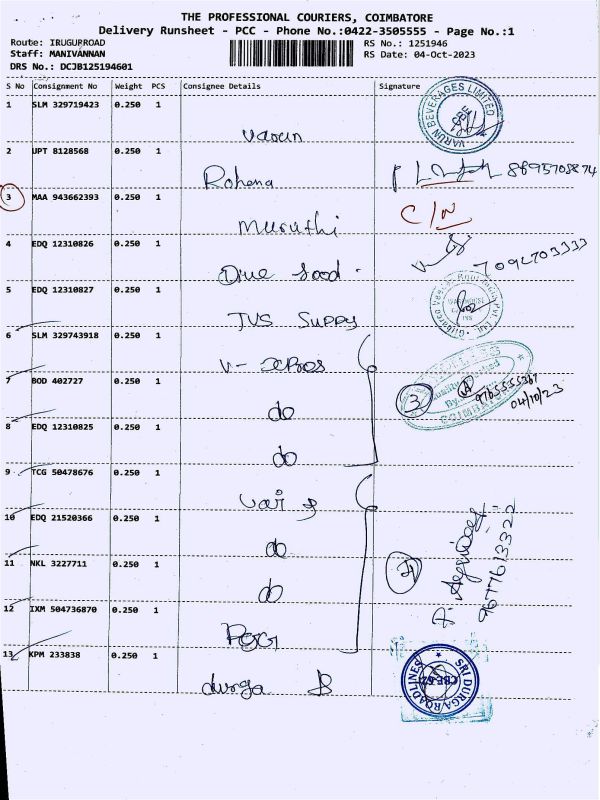 THE PROFESSIONAL COURIERS, COIMBATORE
Delivery Runsheet - PCC - Phone No.:0422-3505555 - Page No.:1
Route: IRUGURROAD
RS No.: 1251946
Staff: MANIVANNAN
RS Date: 04-Oct-2023
DRS No.: DCJB125194601
S No Consignment No Weight PCS Consignee Details Signature
1 SLM 329719423 0.250 1
Varun
VARUN BEVERAGES LIMITED
CBE
2 UPT 8128568 0.250 1
Rohena
8695708874
3 MAA 943662393 0.250 1
Muruthi
C/N
4 EDQ 12310826 0.250 1
One food.
7092703333
5 EDQ 12310827 0.250 1
TVS Suppy
6 SLM 329743918 0.250 1
V-
7 BOD 402727 0.250 1
do
3
9765555367
04/10/23
8 EDQ 12310825 0.250 1
do
9 TCG 50478676 0.250 1
10 EDQ 21520366 0.250 1
do
11 NKL 3227711 0.250 1
do
9677613322
12 IXM 504736870 0.250 1
13 KPM 233838 0.250 1
durga
SRI DURGA ROADLINES
CBE-62